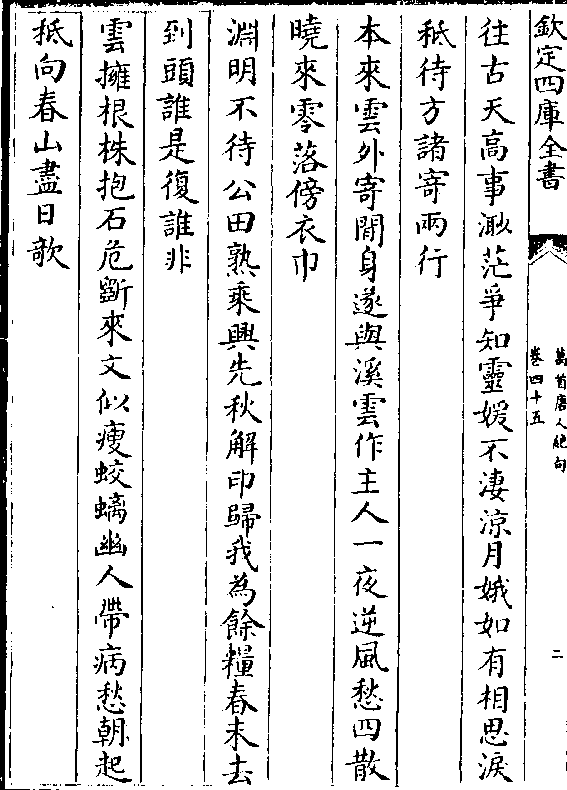 欽定四庫全書
萬首唐人絶句
卷四十五
二
往古天高事渺茫爭知靈媛不淒涼月娥如有相思淚
秪待方諸寄兩行
本來雲外寄閒身遂與溪雲作主人一夜逆風愁四散
曉來零落傍衣巾
淵明不待公田熟乘興先秋解印歸我為餘糧春未去
到頭誰是復誰非
雲擁根株抱石危斵來文似瘦蛟螭幽人帶病愁朝起
秪向春山盡日欹